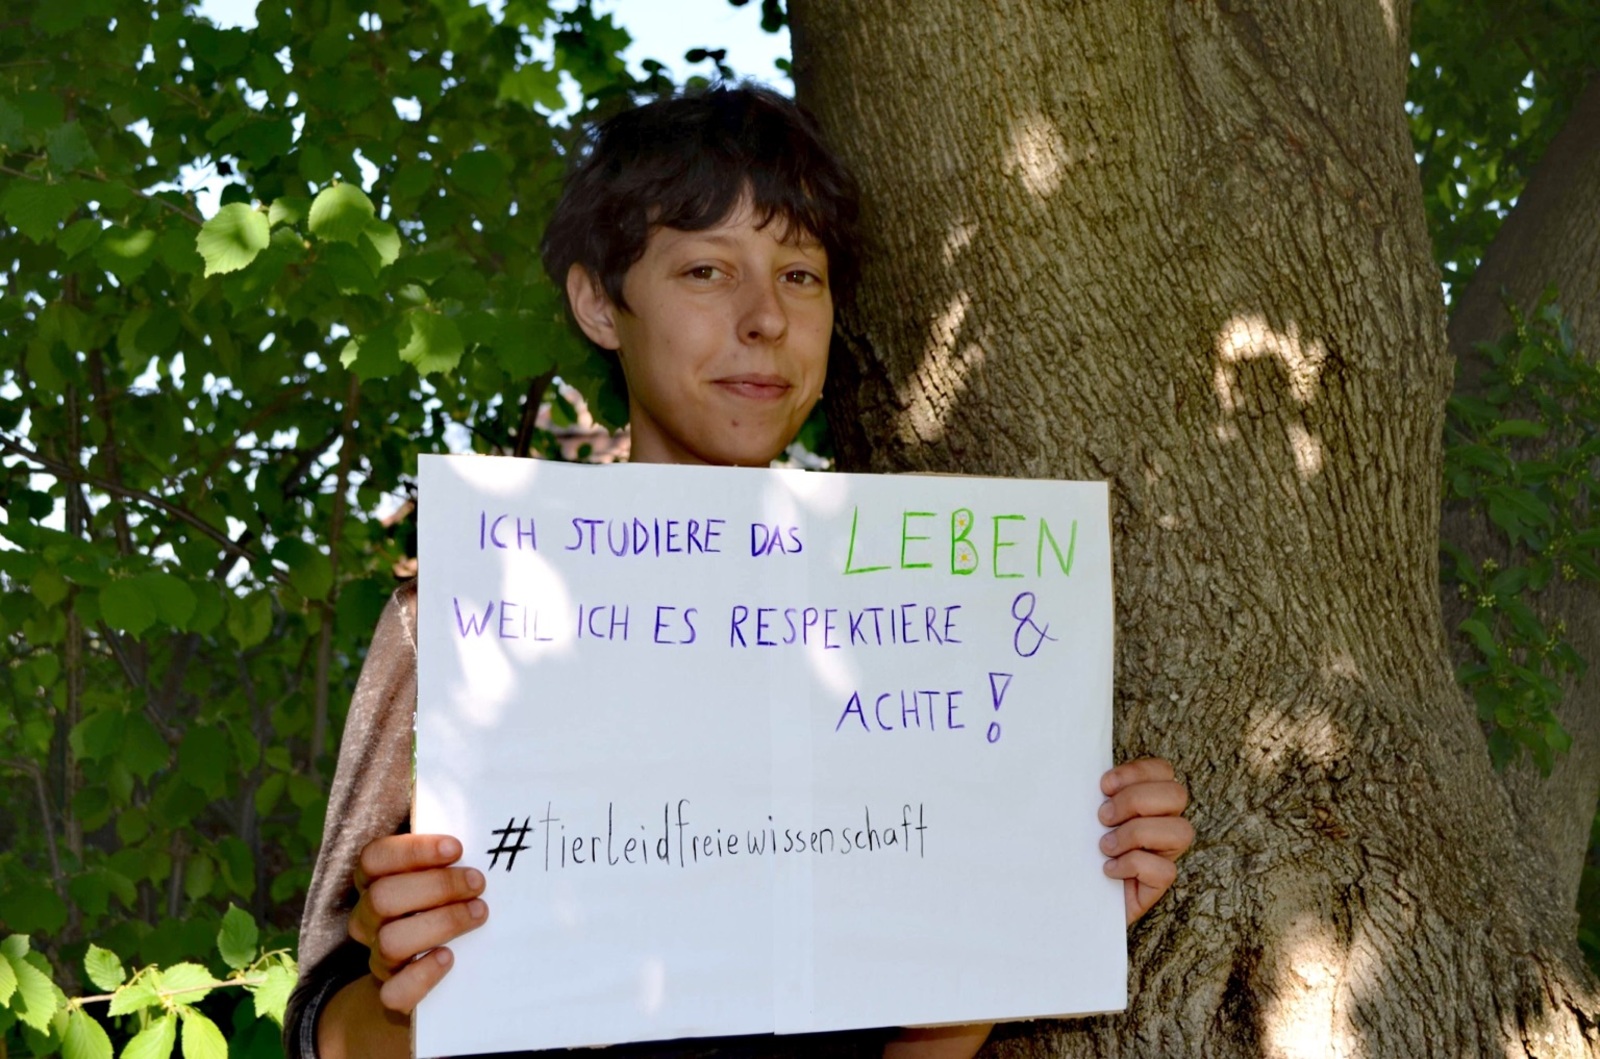 ICH STUDIERE DAS LEBEN
WEIL ICH ES RESPEKTIERE &
ACHTE!
#tierleidfreiewissenschaft